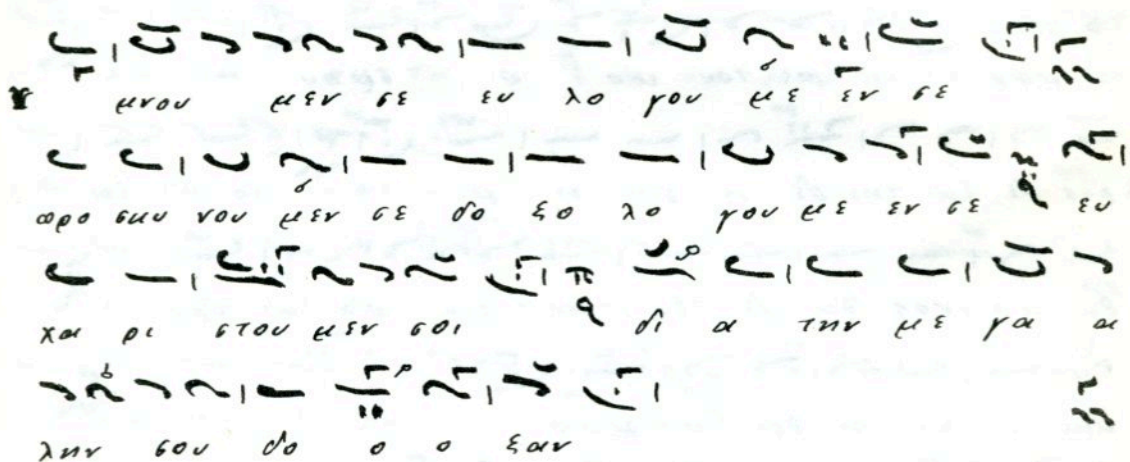 υ μνου μεν σε ευ λο γου με εν σε
προ σκυ νου μεν σε δο ξο λο γου με εν σε ευ
χα ρι στου μεν σοι δι α την με γα α
λην σου δο ο ξαν